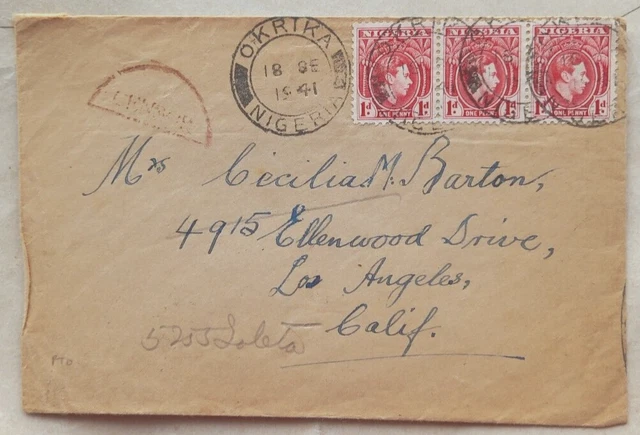 OKRIKA
18 SE
1941
NIGERIA
NIGERIA
1d 1d
ONE PENNY
NIGERIA
1d 1d
ONE PENNY
NIGERIA
1d 1d
ONE PENNY
Mrs Cecilia M. Barton,
4915 Ellenwood Drive,
Los Angeles,
Calif.
5255 Loleta
PTO